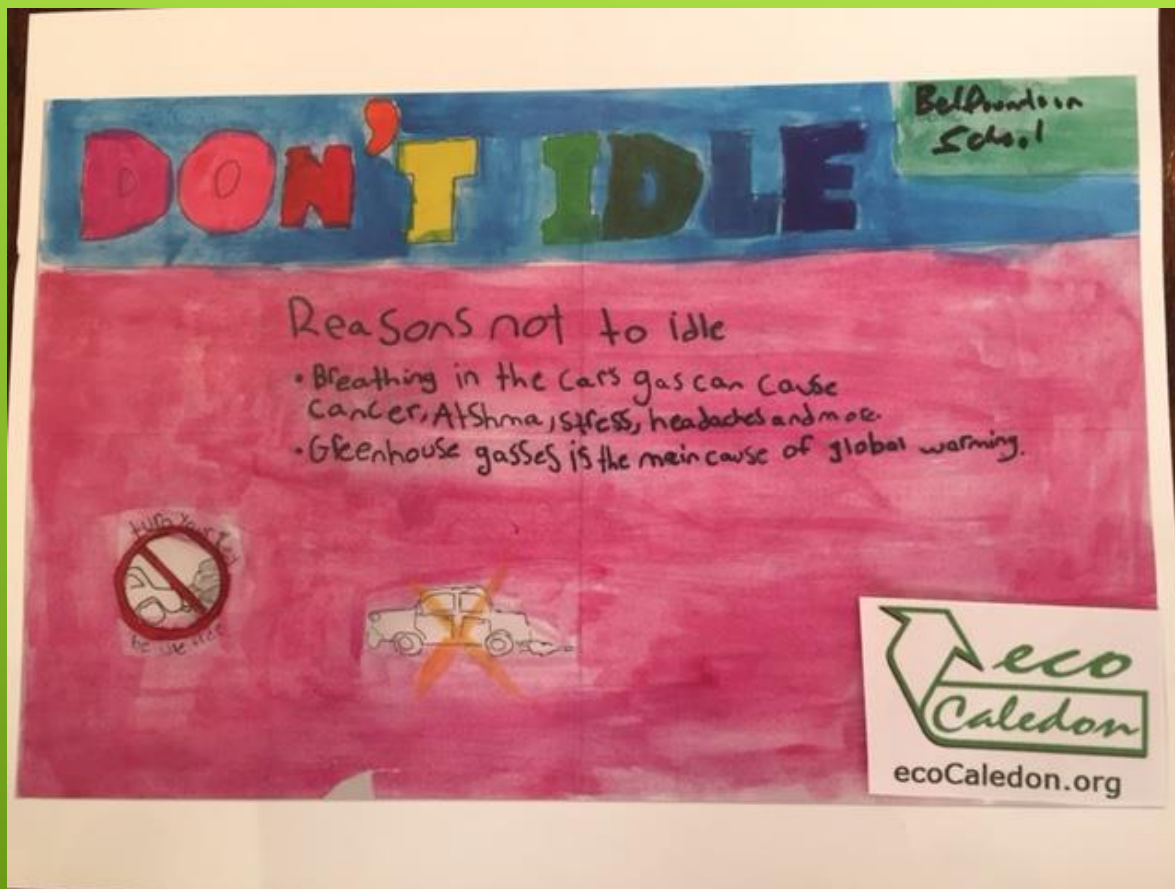 DON'T IDLE
School
Reasons not to idle
• Breathing in the cars gas can cause
cancer, Atshma, stress, headaches and more.
• Greenhouse gasses is the main cause of global warming.
turn your key
be
eco
Caledon
ecoCaledon.org